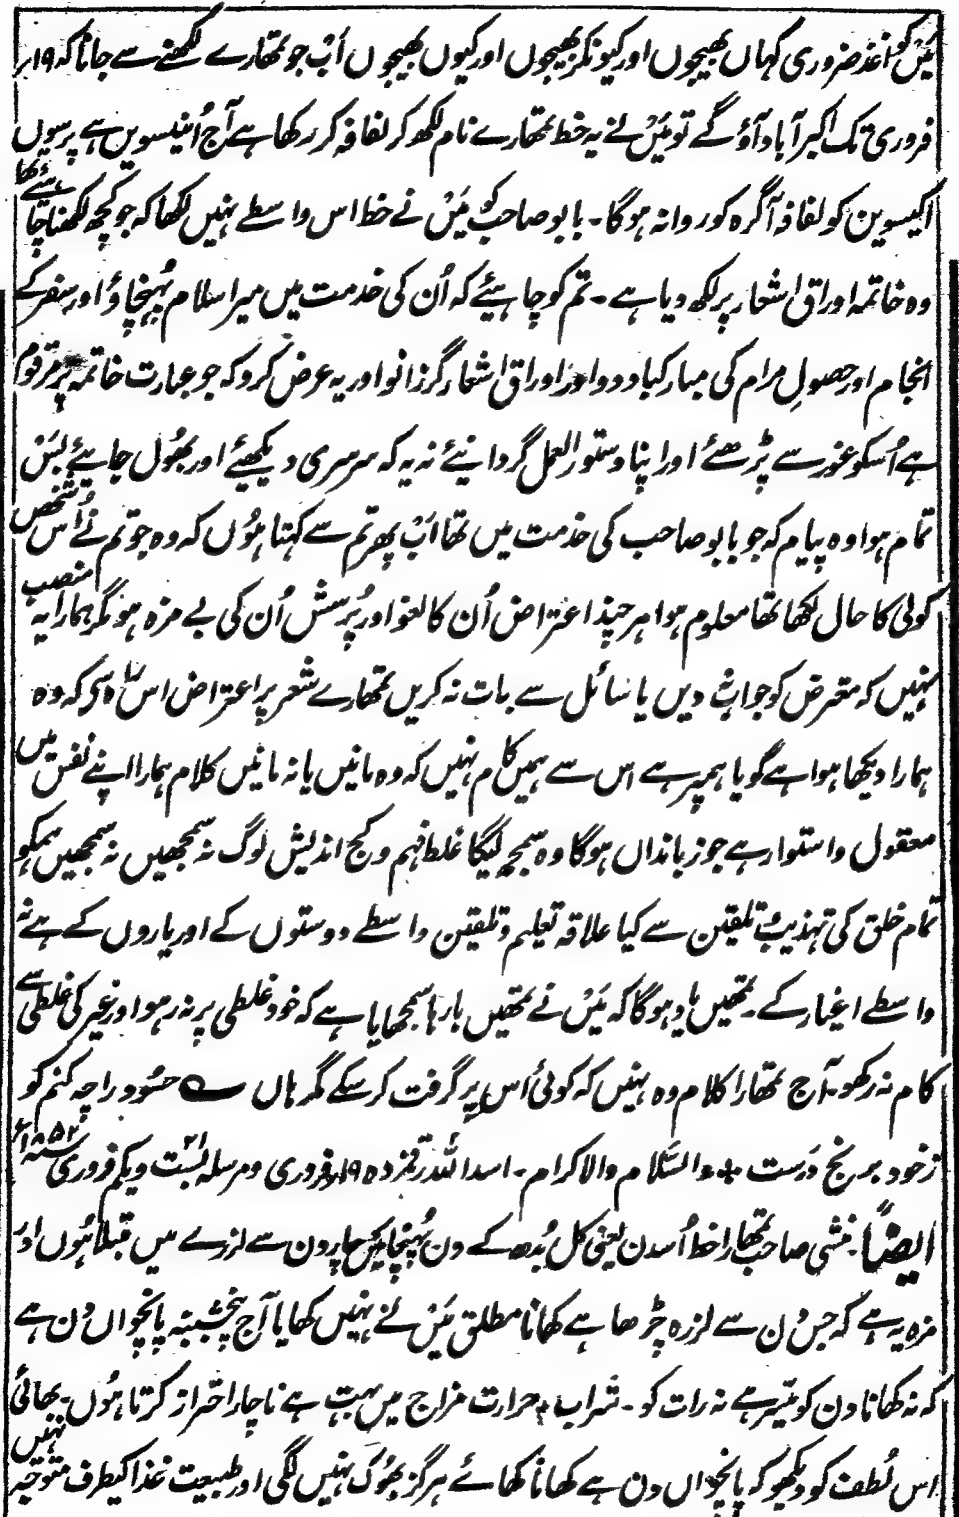 مَیں کاغذ ضروری کہاں بھیجوں اور کیونکر بھیجوں اور کیوں بھیجوں اَب جو تمھارے لکھنے سے جانا کہ ۱۹؍
فروری تک اکبرآباد آؤ گے تو مَیں نے یہ خط تمھارے نام لکھ کر لفافہ کر رکھا ہے آج اُنیسویں ہے پرسوں
اکیسویں کو لفافہ آگرہ کو روانہ ہوگا۔ بابو صاحب کو مَیں نے خط اس واسطے نہیں لکھا کہ جو کچھ لکھنا چاہئے تھا
وہ خاتمہ اوراق اشعار پر لکھ دیا ہے۔ تم کو چاہیئے کہ اُن کی خدمت میں میرا سلام پہُنچاؤ اور سفر کے
انجام اور حصولِ مرام کی مبارکباد دو اور اوراق اشعار گزرانو اور یہ عرض کرو کہ جو عبارت خاتمہ پر مرقوم
ہے اُسکو غور سے پڑھئے اور اپنا دستور العمل گردانیئے نہ یہ کہ سرسری دیکھیئے اور بھُول جایئے بَس
تمام ہوا وہ پیام کہ جو بابو صاحب کی خدمت میں تھا اَب پھر تم سے کہتا ہُوں کہ وہ جو تم نے اُس شخص
کوئی کا حال لکھا تھا معلوم ہوا ہر چند اعتراض اُن کا لغو اور پُرسش اُن کی بے مزہ ہو مگر ہمارا یہ منصب
نہیں کہ معترض کو جواب دیں یا سائل سے بات نہ کریں تمھارے شعر پر اعتراض اس راہ سے کہ وہ
ہمارا دیکھا ہوا ہے گویا ہمپر ہے اس سے ہمیں کام نہیں کہ وہ مانیں یا نہ مانیں کلام ہمارا اپنے نفس میں
معقول و استوار ہے جو زباندان ہوگا وہ سمجھ لیگا غلط فہم و کج اندیش لوگ نہ سمجھیں نہ سمجھیں ہمکو
تمام خلق کی تہذیب و تلقین سے کیا علاقہ تعلیم و تلقین واسطے دوستوں کے اور یاروں کے ہے نہ
واسطے اغیار کے۔ تمھیں یاد ہوگا کہ مَیں نے تمھیں بارہا سمجھایا ہے کہ خود غلطی پر نہ رہو اور غیر کی غلطی سے
کام نہ رکھو۔ آج تمھارا کلام وہ نہیں کہ کوئی اُس پر گرفت کر سکے مگر ہاں ؎ حسُود را چہ کنم کو
ز خود برنج دَرست ÷ والسّلام والاکرام۔ اسد اللہ رقمزدہ ۱۹؍فروری و مرسلہ ۲۱ بست و یکم فروری سنہ ۱۸۵۲ء
ایضًا۔ منشی صاحب تمھارا خط اُسدن یعنی کل بُدھ کے دن پہُنچا مَیں چار دن سے لرزے میں مبتلا ہُوں اور
مزہ یہ ہے کہ جس دن سے لرزہ چڑھا ہے کھانا مطلق مَیں نے نہیں کھایا آج پنجشبنہ پانچواں دن ہے
کہ نہ کھانا دن کو میّسر ہے نہ رات کو۔ شراب۔ حرارت مزاج میں بہت ہے ناچار احتراز کرتا ہُوں۔ بھائی
اس لُطف کو دیکھو کہ پانچواں دن ہے کھانا کھائے ہرگز بھُوک نہیں لگی اور طبیعت غذا کیطرف متوجّہ نہیں